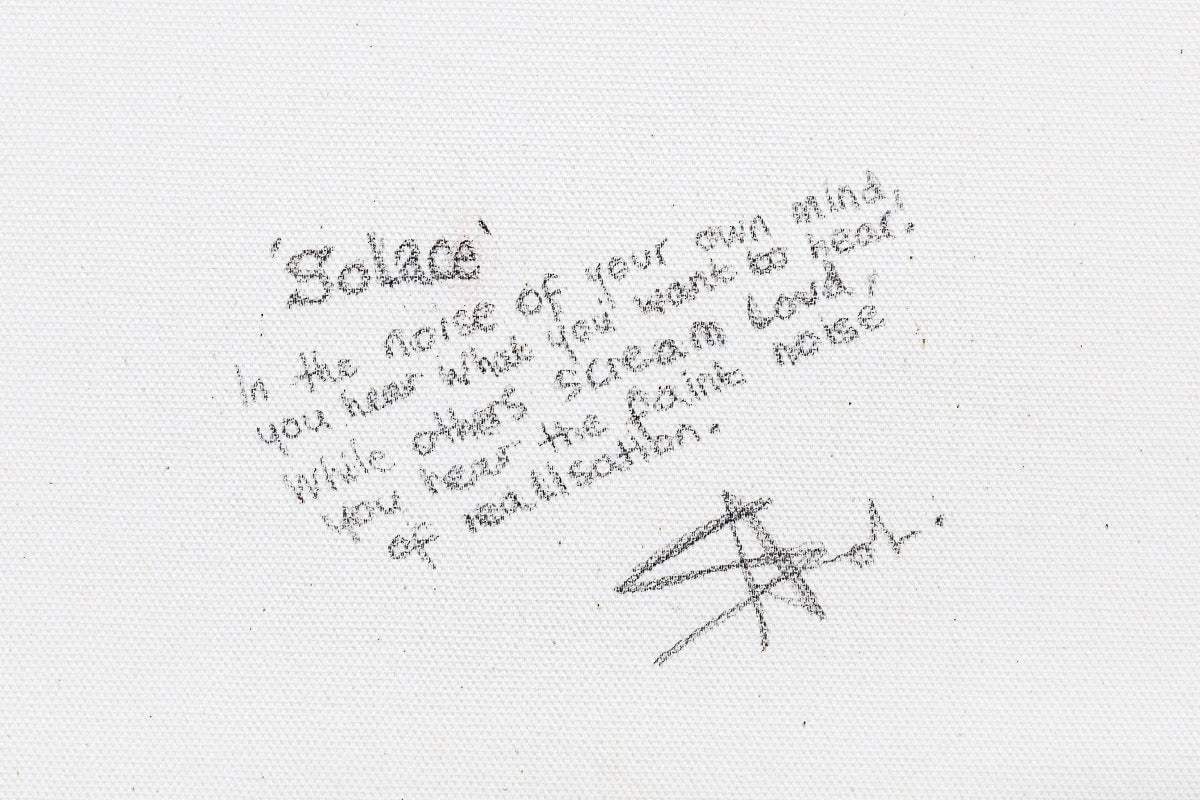 'Solace'
In the noise of your own mind,
you hear what you want to hear.
While others scream loud,
you hear the paint noise
of realisation.